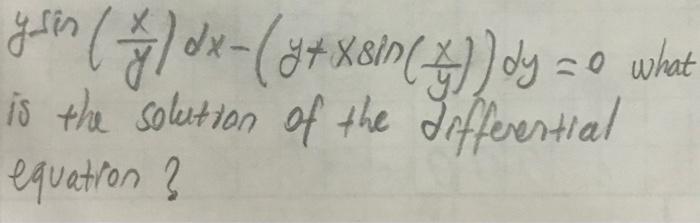 y sin(x/y) dx - (y + x sin(x/y)) dy = 0 what
is the solution of the differential
equation?